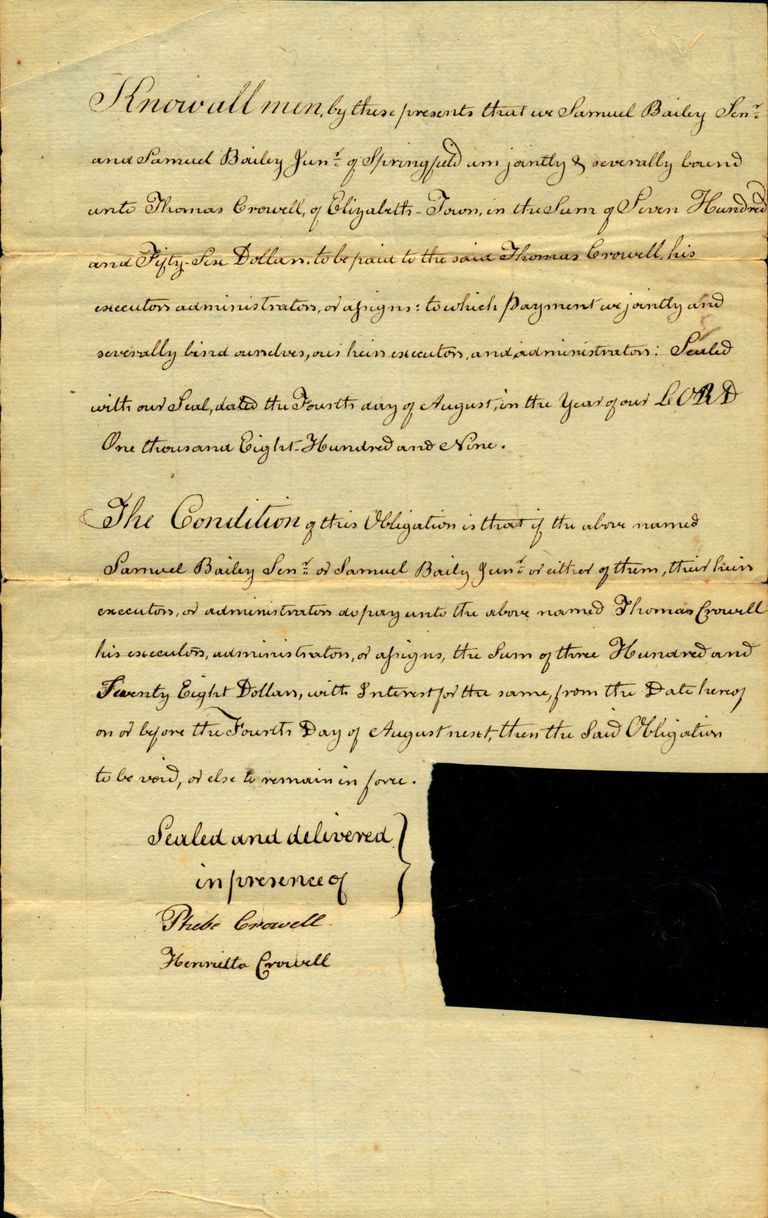 Know all men, by these presents that we Samuel Bailey Senr.
and Samuel Bailey Junr. of Springfield am jointly & severally bound
unto Thomas Crowell, of Elizabeth-Town, in the Sum of Seven Hundred
and Fifty-Six Dollars, to be paid to the said Thomas Crowell, his
executors administrators, or assigns: to which payment we jointly and
severally bind ourselves, our heirs executors, and administrators: Sealed
with our Seal, dated the Fourth day of August, in the Year of our LORD
One thousand Eight-Hundred and Nine.
The Condition of this Obligation is that if the above named
Samuel Bailey Senr. or Samuel Baily Junr. or either of them, their heirs
executors, or administrators do pay unto the above named Thomas Crowell
his executors, administrators, or assigns, the Sum of three Hundred and
Seventy Eight Dollars, with Interest for the same, from the Date hereof
on or before the Fourth Day of August next, then the Said Obligation
to be void, or else to remain in force.
Sealed and delivered
in presence of
Phebe Crowell
Henrietta Crowell